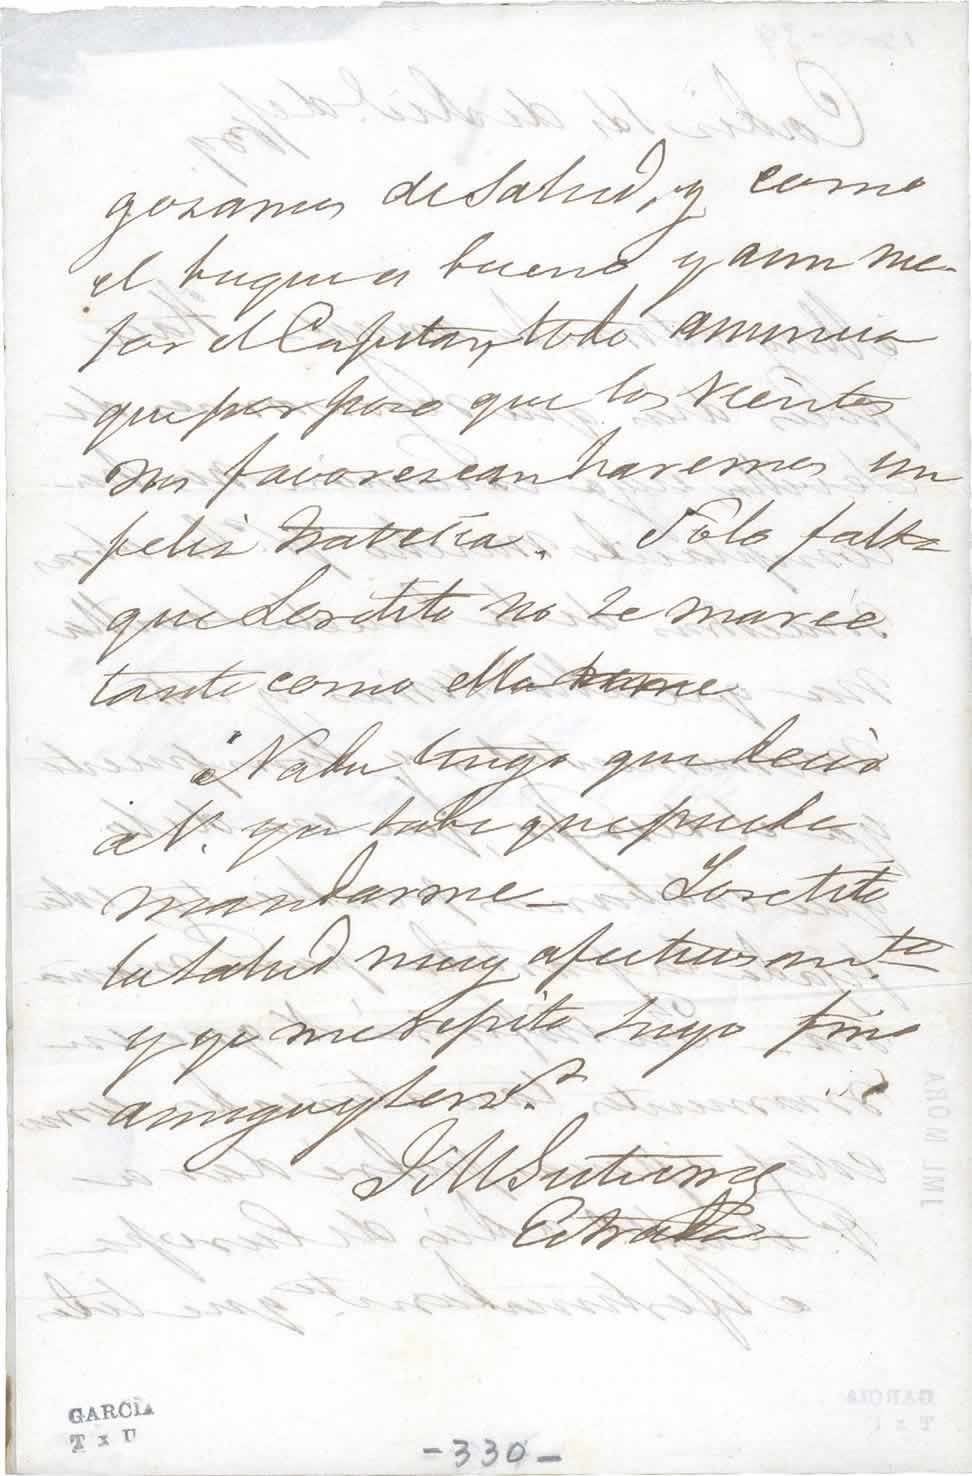 gozamos de salud, y como
el buque es bueno y aun me-
jor el Capitan, todo anuncia
que por poco que los vientos
nos favorezcan haremos un
feliz travesia. Solo falta
que Loretito no se marée
tanto como ella teme
Nada tengo que decir
a V. ya sabe que puede
mandarme_ Loretito
lo saluda muy afectuosam.te
y yo me repito suyo fino
amigo y serv.r
J M Gutierrez
Estrada
GARCÍA
T x
-330-
JML MORA